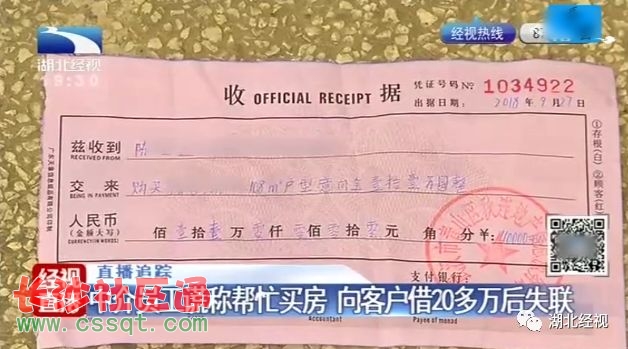 经视热线 87
湖北经视
19:30
凭证号码 No 1034922
收 OFFICIAL RECEIPT 据
出据日期: 2018 年 9 月 27 日
兹收到 陈
RECEIVED FROM
交来 购买 108㎡户型意向金壹拾壹万圆整
BEING IN PAYMENT
人民币 佰 壹 拾 壹 万 零 仟 零 佰 零 拾 零 元 角 分 ¥: 110000
(金额大写)
(CURRENCY IN WORDS)
①存根(白) ②顾客(红)
支付银行:
经视直播
直播追踪
称帮忙买房 向客户借20多万后失联
长沙社区通
www.cssqt.com
Accountant
Payee of monad
湖北经视